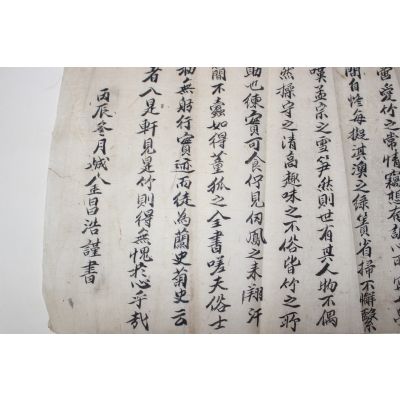 愛竹之常情竊想有
閒自怡每擬淇澳之綠簀省掃不懈繄
嘆孟宗之雪笋然則世有其人物不偶
然操守之清高趣味之不俗皆竹之所
助也練實可食佇見鳳之来翔汗
簡不蠹如得董狐之全書嗟夫俗士
無躬行實迹而徒為蘭史菊史云
者入是軒見是竹則得無愧於心乎哉
丙辰月城人金昌浩謹書